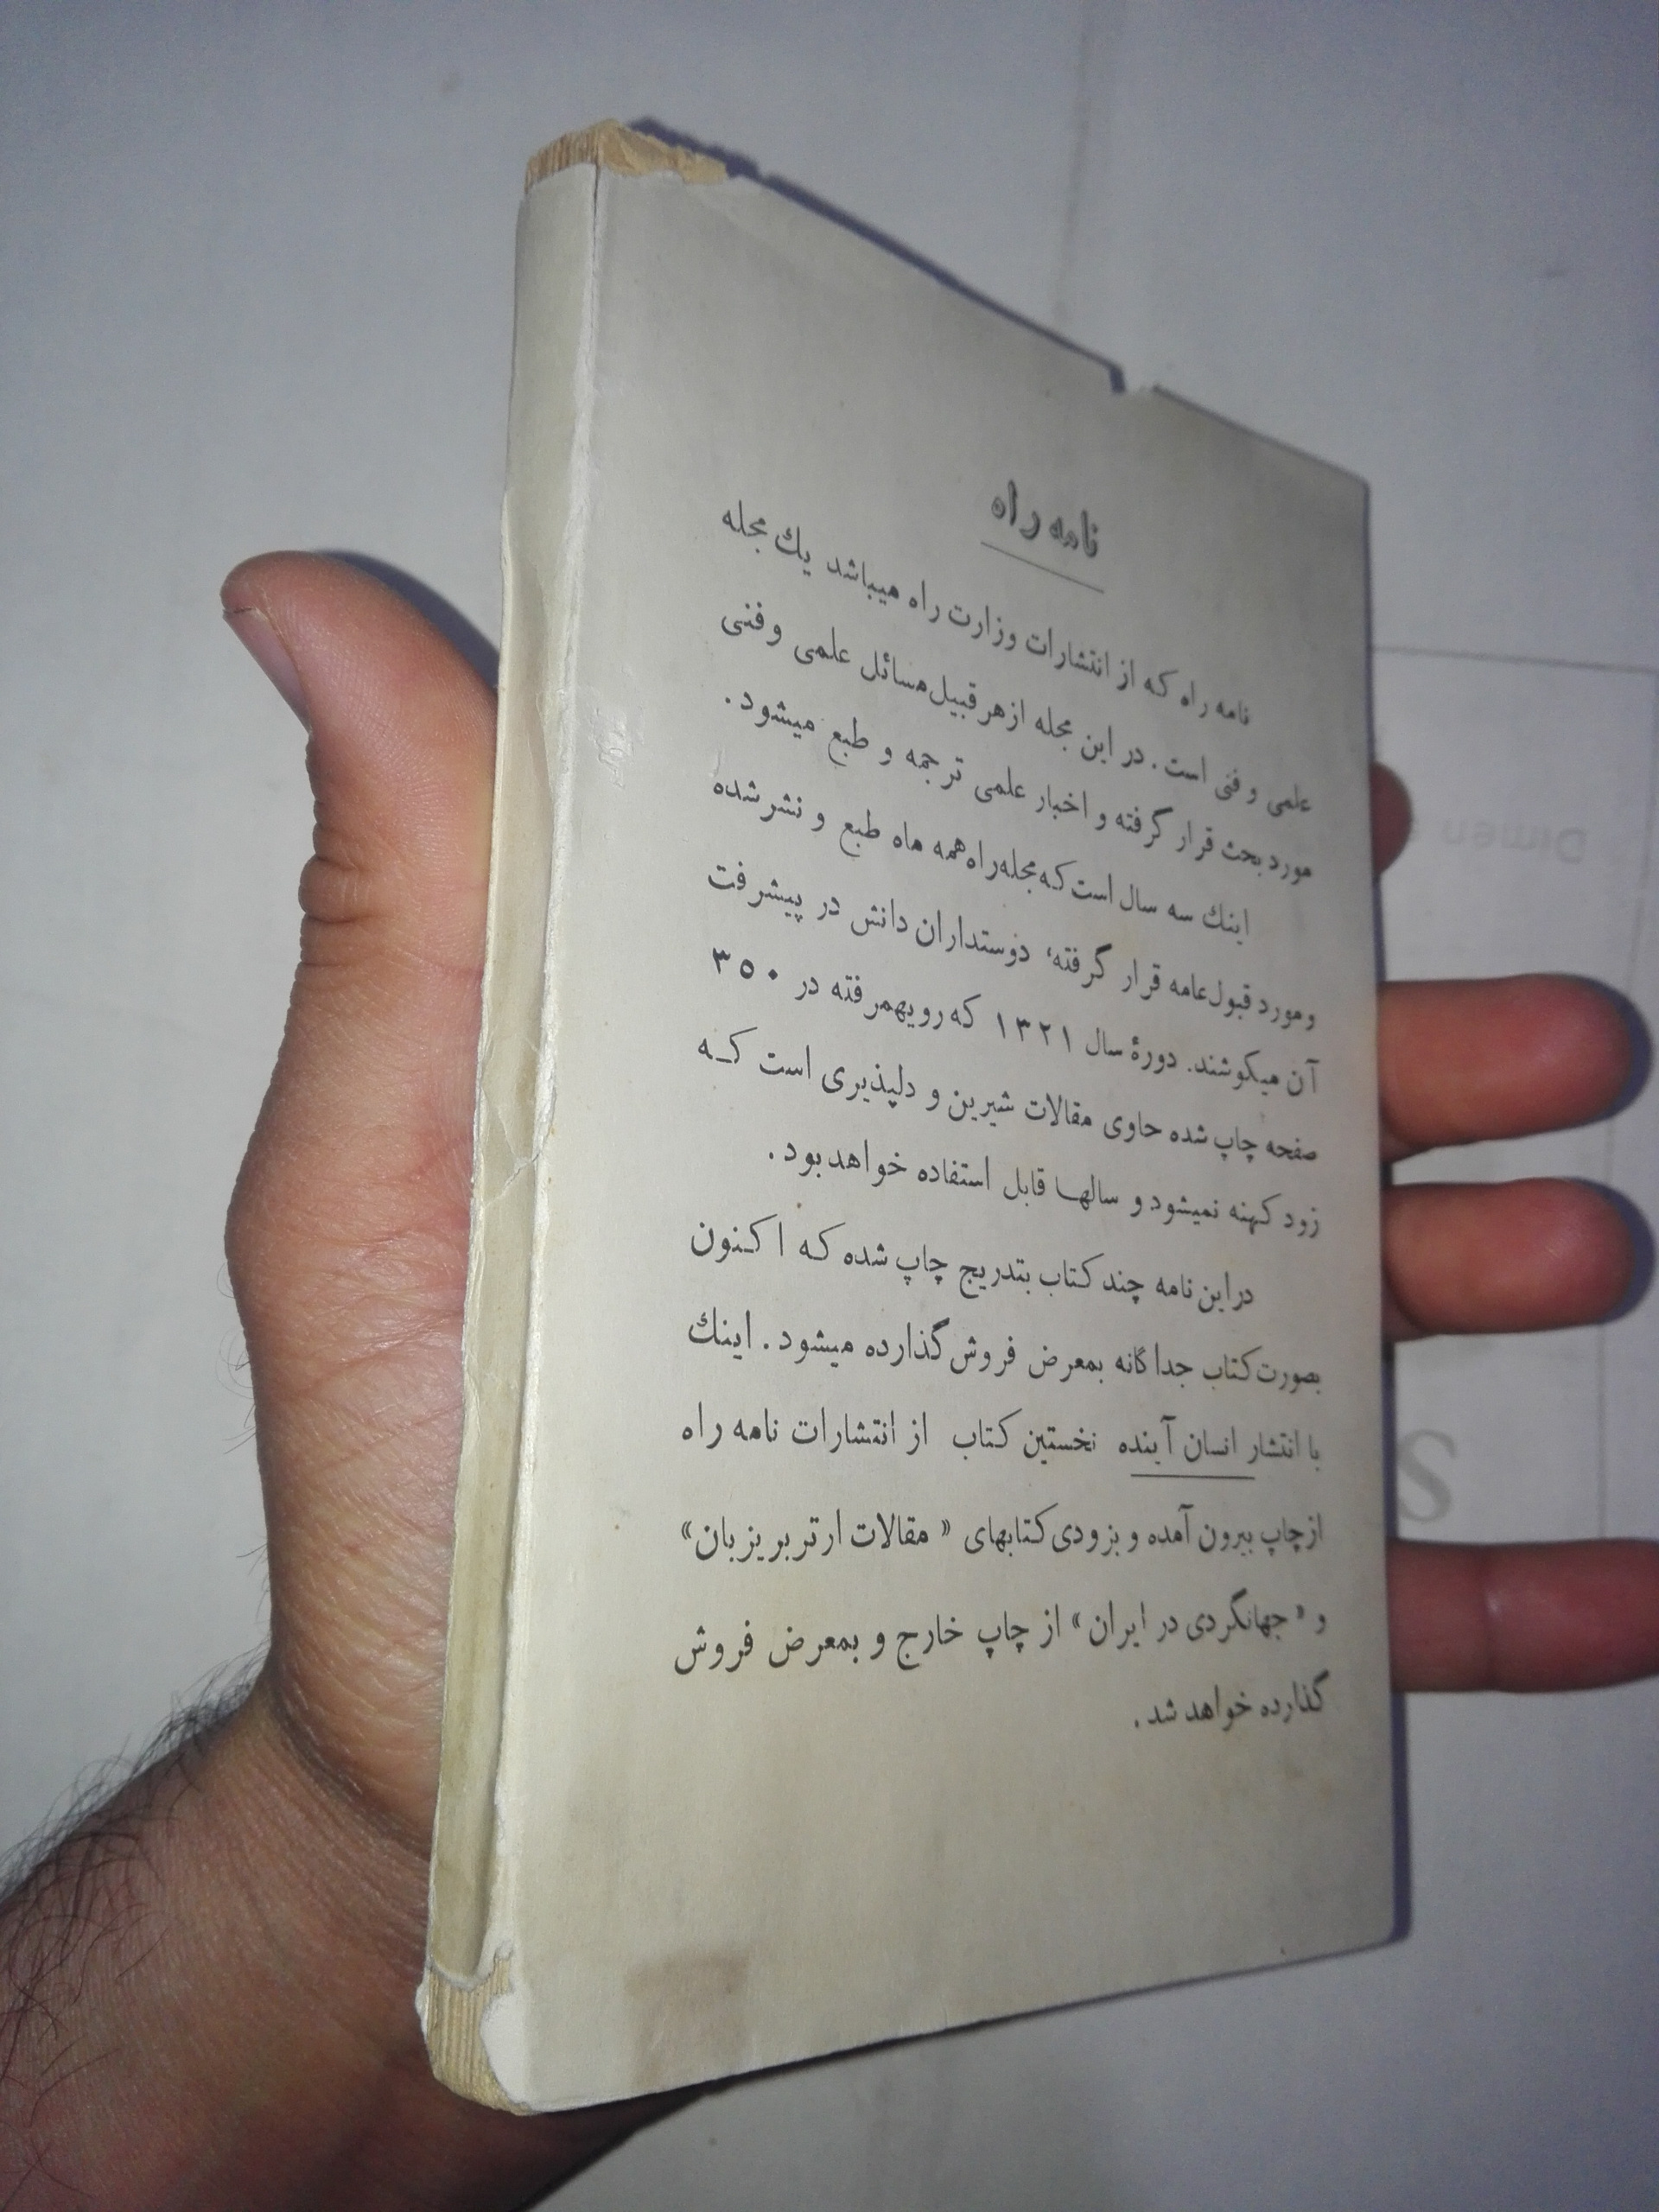 نامه راه
نامه راه که از انتشارات وزارت راه میباشد یك مجله
علمی و فنی است. در این مجله از هر قبیل مسائل علمی و فنی
مورد بحث قرار گرفته و اخبار علمی ترجمه و طبع میشود.
اینك سه سال است که مجله راه همه ماه طبع و نشر شده
و مورد قبول عامه قرار گرفته، دوستداران دانش در پیشرفت
آن میکوشند. دورهٔ سال ۱۳۲۱ که رویهمرفته در ۳۵۰
صفحه چاپ شده حاوی مقالات شیرین و دلپذیری است کـه
زود کهنه نمیشود و سالهـا قابل استفاده خواهد بود.
در این نامه چند کتاب بتدریج چاپ شده کـه اکـنون
بصورت کتاب جداگانه بمعرض فروش گذارده میشود. اینك
با انتشار انسان آینده نخستین کتاب از انتشارات نامه راه
از چاپ بیرون آمده و بزودی کتابهای «مقالات ارتر بریزبان»
و «جهانگردی در ایران» از چاپ خارج و بمعرض فروش
گذارده خواهد شد.
Dimen
S